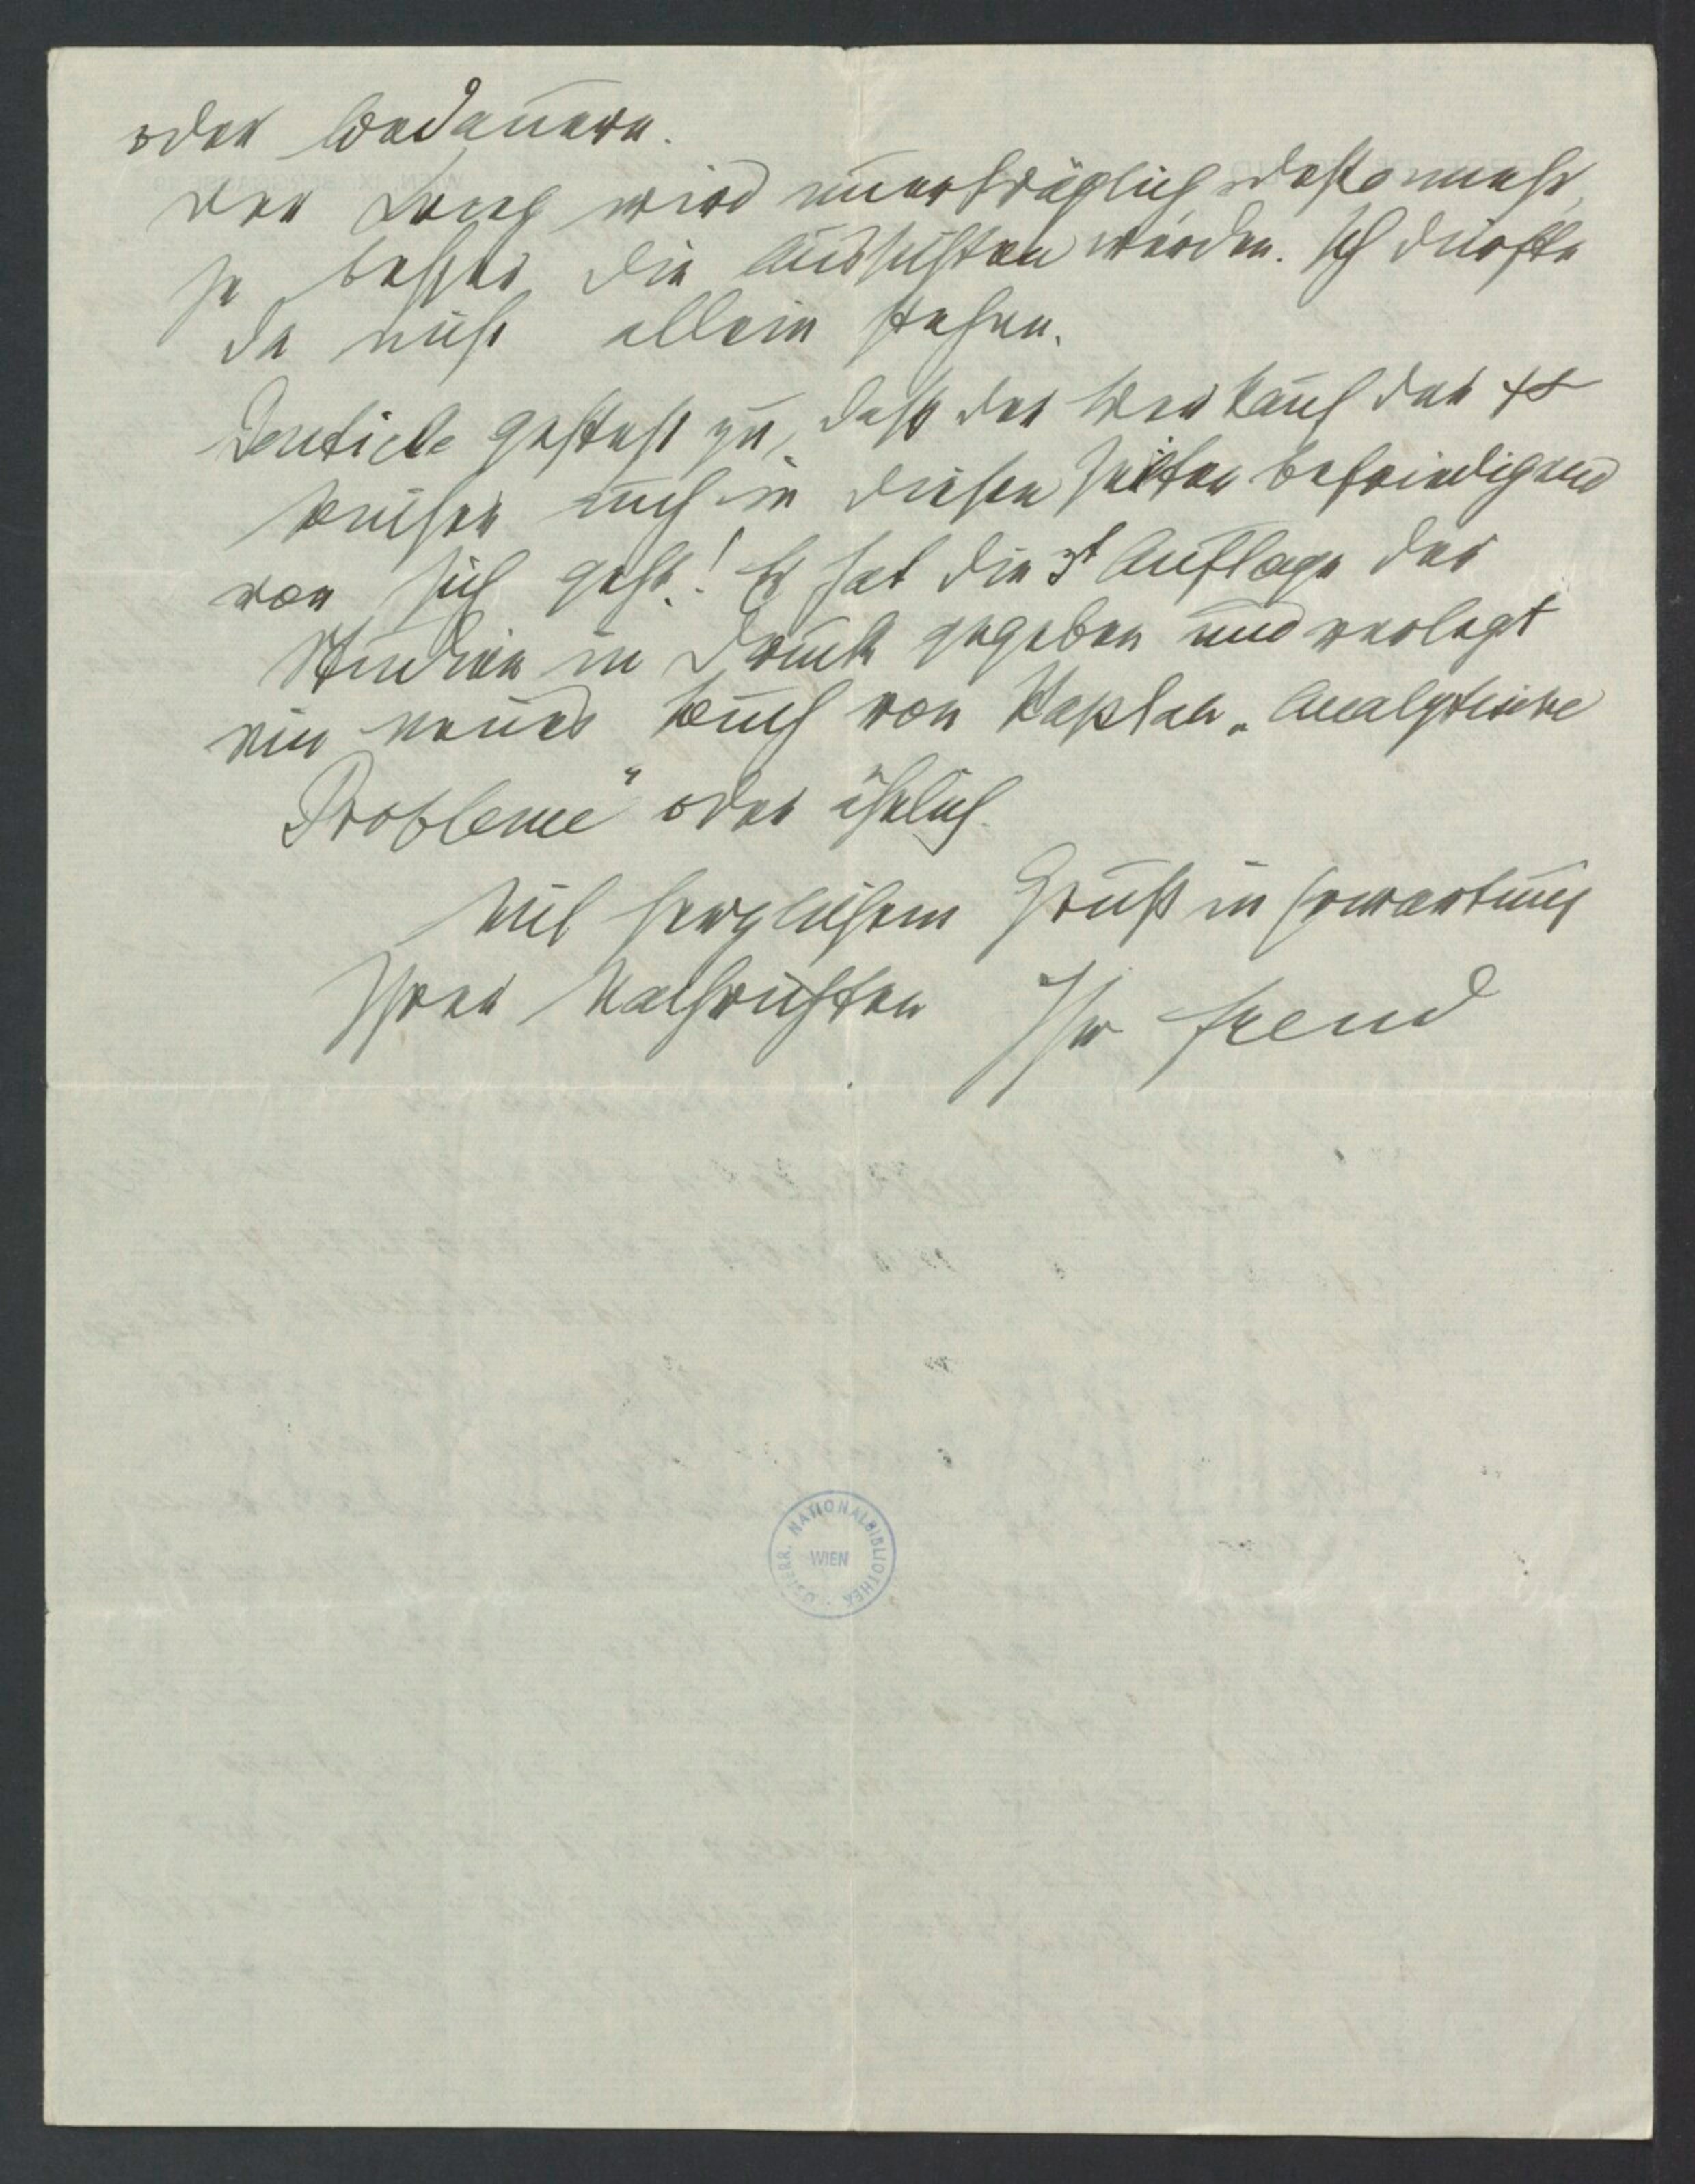 oder bedauern.
Der Krieg wird unerträglich, desto mehr,
je besser die Aussichten werden. Ich dürfte
da nicht allein stehen.
Deuticke gesteht zu, daß der Verkauf der ψα
Bücher auch in diesen Zeiten befriedigend
vor sich geht! Er hat die 3t Auflage der
Studien in Druck gegeben und verlegt
ein neues Buch von Kaplan „Analytische
Probleme“ oder ähnlich.
Mit herzlichem Gruß in Erwartung
Ihrer Nachrichten Ihr Freud
ÖSTERR. NATIONALBIBLIOTHEK
WIEN